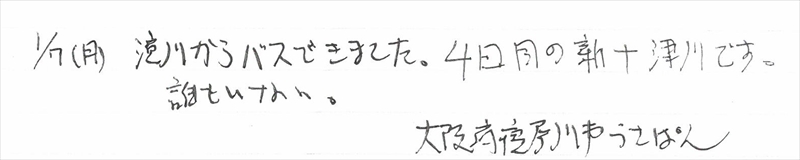 1/7(月) 滝川からバスできました。4日目の新十津川です。
誰もいない。
大阪府寝屋川市うさぱん